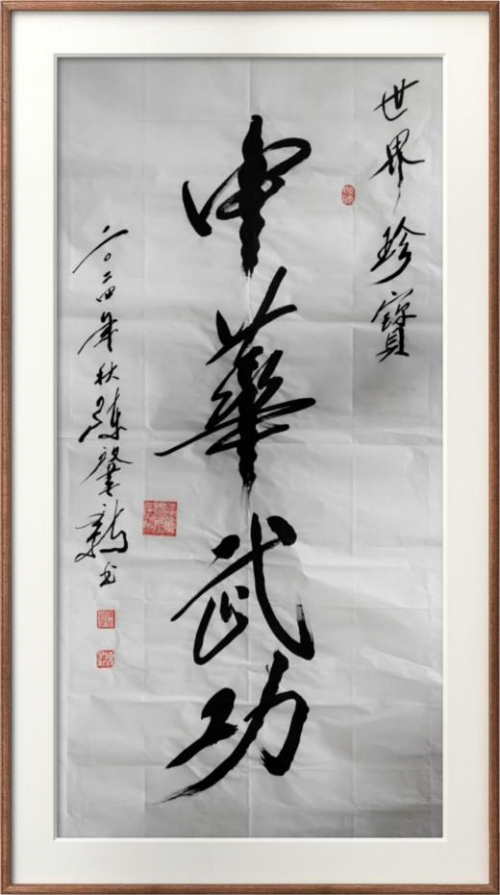 世界珍寶
中華武功
二〇二四年秋陳肇勳书